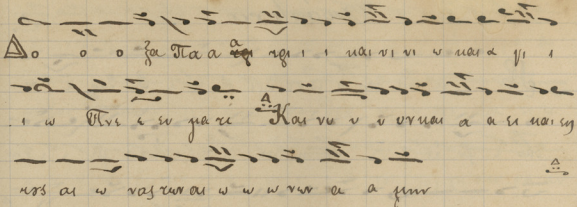 Δο ο ο ξα Πα α α τρι ι ι και νι νι ω και α γι ι
ι ω Πνε ε ευ μα τι Και νυ υ υ υν και α α ει και εις
τους αι ω νας των αι ω ω ω νων α α μην